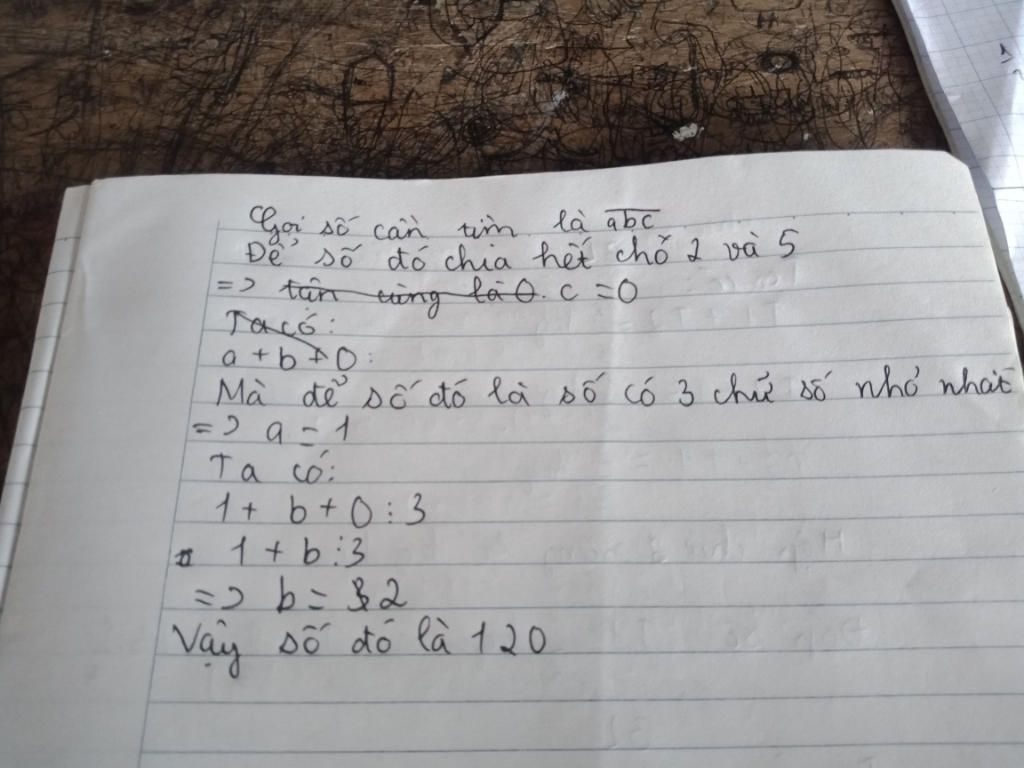 Gọi số cần tìm là abc
Để số đó chia hết chỏ 2 và 5
=> tận cùng là 0. c = 0
Ta có:
a + b + 0:
Mà để số đó là số có 3 chữ số nhỏ nhất
=> a = 1
Ta có:
1 + b + 0 : 3
1 + b ⋮ 3
=> b = 2
Vậy số đó là 120